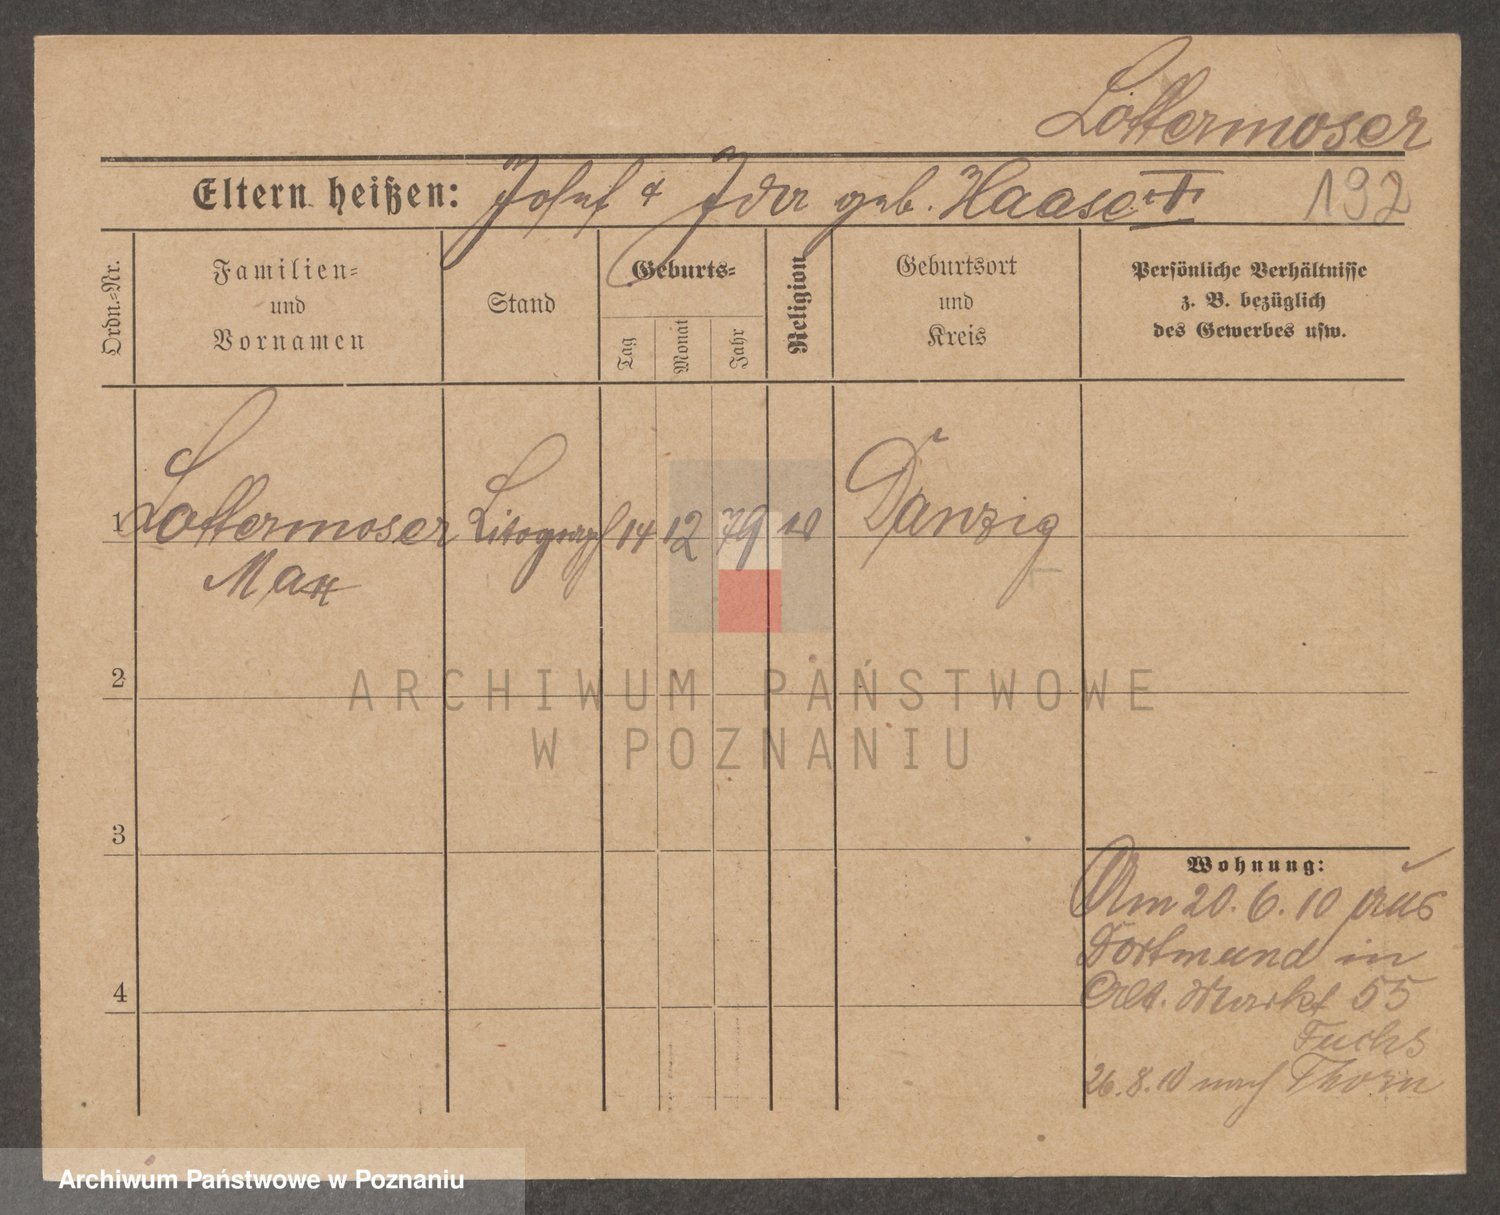 Lottermoser
Eltern heißen: Josef & Ida geb. Haase
192
Ordn.=Nr.
Familien=
und
Vornamen
Stand
Geburts=
Tag
Monat
Jahr
Religion
Geburtsort
und
Kreis
Persönliche Verhältnisse
z. B. bezüglich
des Gewerbes usw.
1 Lottermoser Litograph 14 12 79 Danzig
Max
2
3
4
Wohnung:
Am 20. 6. 10 aus
Dortmund in
Alt. Markt 55
Fuchs
26. 8. 10 nach Thorn
ARCHIWUM PAŃSTWOWE
W POZNANIU
Archiwum Państwowe w Poznaniu